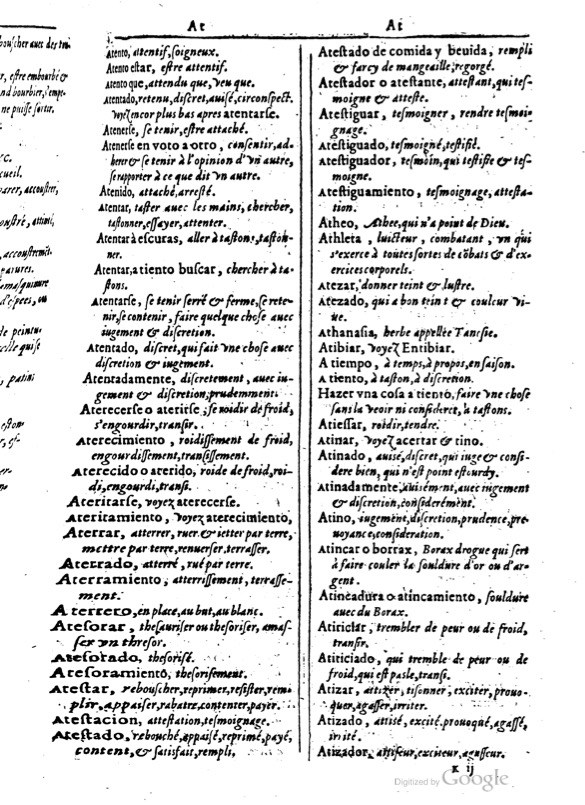 At
At
Atento, attentif, soigneux.
Atento estar, estre attentif.
Atento que, attendu que, veu que.
Atentado, retenu, discret, auisé, circonspect.
voyez encor plus bas apres atentarse.
Atenerse, se tenir, estre attaché.
Atenerse en voto a otro, consentir, ad-
herer & se tenir à l'opinion d'vn autre,
se rapporter à ce que dit vn autre.
Atenido, attaché, arresté.
Atentar, taster auec les mains, chercher,
tastonner, essayer, attenter.
Atentar à escuras, aller à tastons, taston-
ner.
Atentar, a tiento buscar, chercher à ta-
stons.
Atentarse, se tenir serré & ferme, se rete-
nir, se contenir, faire quelque chose auec
iugement & discretion.
Atentado, discret, qui fait vne chose auec
discretion & iugement.
Atentadamente, discretement, auec iu-
gement & discretion, prudemment.
Aterecerse o aterirse, se roidir de froid,
s'engourdir, transir.
Aterecimiento, roidissement de froid,
engourdissement, transissement.
Aterecido o aterido, roide de froid, roi-
di, engourdi, transi.
Ateritarse, voyez aterecerse.
Ateritamiento, voyez aterecimiento,
Aterrar, atterrer, ruer & ietter par terre,
mettre par terre, renuerser, terrasser.
Aterrado, atterré, rué par terre.
Aterramiento, atterrissement, terrasse-
ment.
A terrero, en place, au but, au blanc.
Atesorar, thesauriser ou thesoriser, amas-
ser vn thresor.
Atesorado, thesorisé.
Atesoramiento, thesorisement.
Atestar, reboucher, reprimer, resister, rem-
plir, appaiser, rabatre, contenter, payer.
Atestacion, attestation, tesmoignage.
Atestado, rebouché, appaisé, reprimé, payé,
content, & satisfait, rempli,
Atestado de comida y beuida, rempli
& farcy de mangeaille, regorgé.
Atestador o atestante, attestant, qui tes-
moigne & atteste.
Atestiguar, tesmoigner, rendre tesmoi-
gnage.
Atestiguado, tesmoigné, testifié.
Atestiguador, tesmoin, qui testifie & tes-
moigne.
Atestiguamiento, tesmoignage, attesta-
tion.
Atheo, Athee, qui n'a point de Dieu.
Athleta, luicteur, combatant, vn qui
s'exerce à toutes sortes de cōbats & d'ex-
ercices corporels.
Atezar, donner teint & lustre.
Atezado, qui a bon teint & couleur vi-
ue.
Athanasia, herbe appellée Tancsie.
Atibiar, voyez Entibiar.
A tiempo, à temps, à propos, en saison.
A tiento, à taston, à discretion.
Hazer vna cosa a tiento, faire vne chose
sans la veoir ni considerer, à tastons.
Atiessar, roidir, tendre.
Atinar, voyez acertar & tino.
Atinado, auisé, discret, qui iuge & consi-
dere bien, qui n'est point estourdy.
Atinadamente, auisément, auec iugement
& discretion, considerément.
Atino, iugement, discretion, prudence, pre-
uoyance, consideration.
Atincar o borrax, Borax drogue qui sert
à faire couler la souldure d'or ou d'ar-
gent.
Atincadura o atincamiento, souldure
auec du Borax.
Atiricîar, trembler de peur ou de froid,
transir.
Atiriciado, qui tremble de peur ou de
froid, qui est pasle, transi.
Atizar, attizer, tisonner, exciter, prouo-
quer, agasser, irriter.
Atizado, attisé, excité, prouoqué, agassé,
irrité.
Atizador, attiseur, exciteur, agasseur.
K ij
Digitized by Google